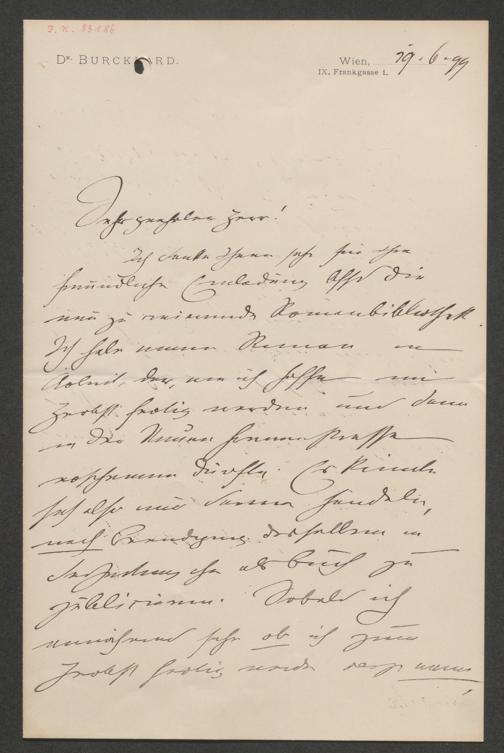 J. N. 83186
Dr. BURCKHARD.
Wien, 19.6.99
IX. Frankgasse 1.
Sehr geehrter Herr!
Ich danke Ihnen sehr für Ihre
freundliche Einladung die
neu zu Romanbibliothek.
Ich habe einen Roman in
Arbeit, der, wie ich hoffe im
Herbst fertig werden und dann
in der Neuen freien Presse
erscheinen dürfte. Es könnte
sich also nur darum handeln,
nach Beendigung desselben in
als Buch zu
publicieren. Sobald ich
annähernd sehe ob ich zum
Herbst fertig werde resp wann